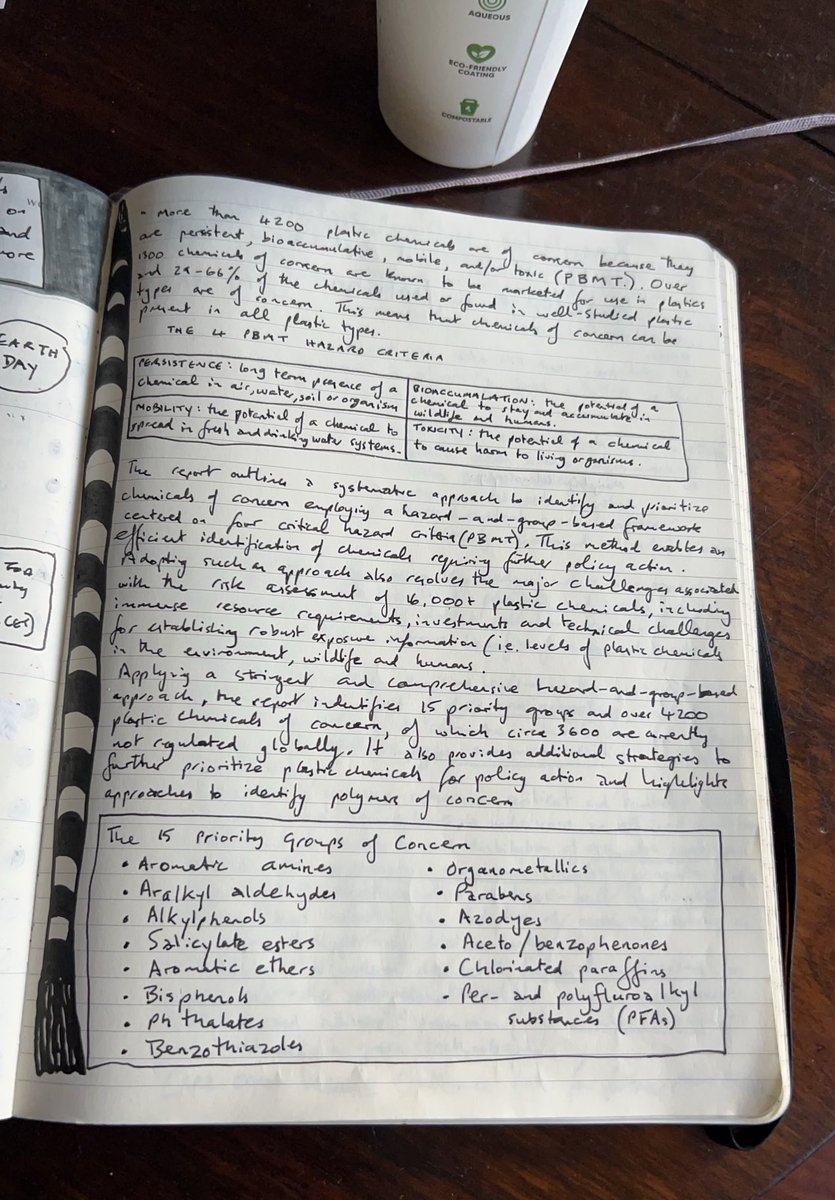 AQUEOUS
ECO-FRIENDLY
COATING
COMPOSTABLE
on
and
more
EARTH
DAY
...
FOR
- More than 4200 plastic chemicals are of concern because they
are persistent, bioaccumulative, mobile, and/or toxic (PBMT.). Over
1300 chemicals of concern are known to be marketed for use in plastics
and 29-66% of the chemicals used or found in well-studied plastic
types are of concern. This means that chemicals of concern can be
present in all plastic types.
THE 4 PBMT HAZARD CRITERIA
PERSISTENCE: long term presence of a
chemical in air, water, soil or organism
BIOACCUMALATION: the potential of a
chemical to stay and accumulate in
wildlife and humans.
MOBILITY: the potential of a chemical to
spread in fresh and drinking water systems.
TOXICITY: the potential of a chemical
to cause harm to living organisms.
The report outlines a systematic approach to identify and prioritize
chemicals of concern employing a hazard-and-group-based framework
centered on four critical hazard criteria (PBMT). This method enables an
efficient identification of chemicals requiring further policy action.
Adopting such an approach also resolves the major challenges associated
with the risk assessment of 16,000+ plastic chemicals, including
immense resource requirements, investments and technical challenges
for establishing robust exposure information (i.e. levels of plastic chemicals
in the environment, wildlife and humans.
Applying a stringent and comprehensive hazard-and-group-based
approach, the report indentifies 15 priority groups and over 4200
plastic chemicals of concern, of which circa 3600 are currently
not regulated globally. It also provides additional strategies to
further prioritize plastic chemicals for policy action and highlights
approaches to identify polymers of concern
The 15 Priority Groups of Concern
• Aromatic amines
• Aralkyl aldehydes
• Alkylphenols
• Salicylate esters
• Aromatic ethers
• Bisphenols
• Phthalates
• Benzothiazoles
• Organometallics
• Parabens
• Azodyes
• Aceto/benzophenones
• Chlorinated paraffins
• Per- and polyfluroalkyl
substances (PFAs)